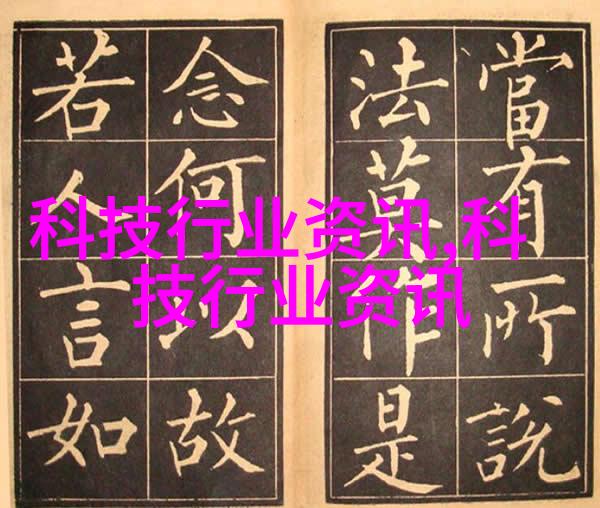 當有所說
法莫作是
念何以故
若人言如
科技行业资讯,科
技行业资讯